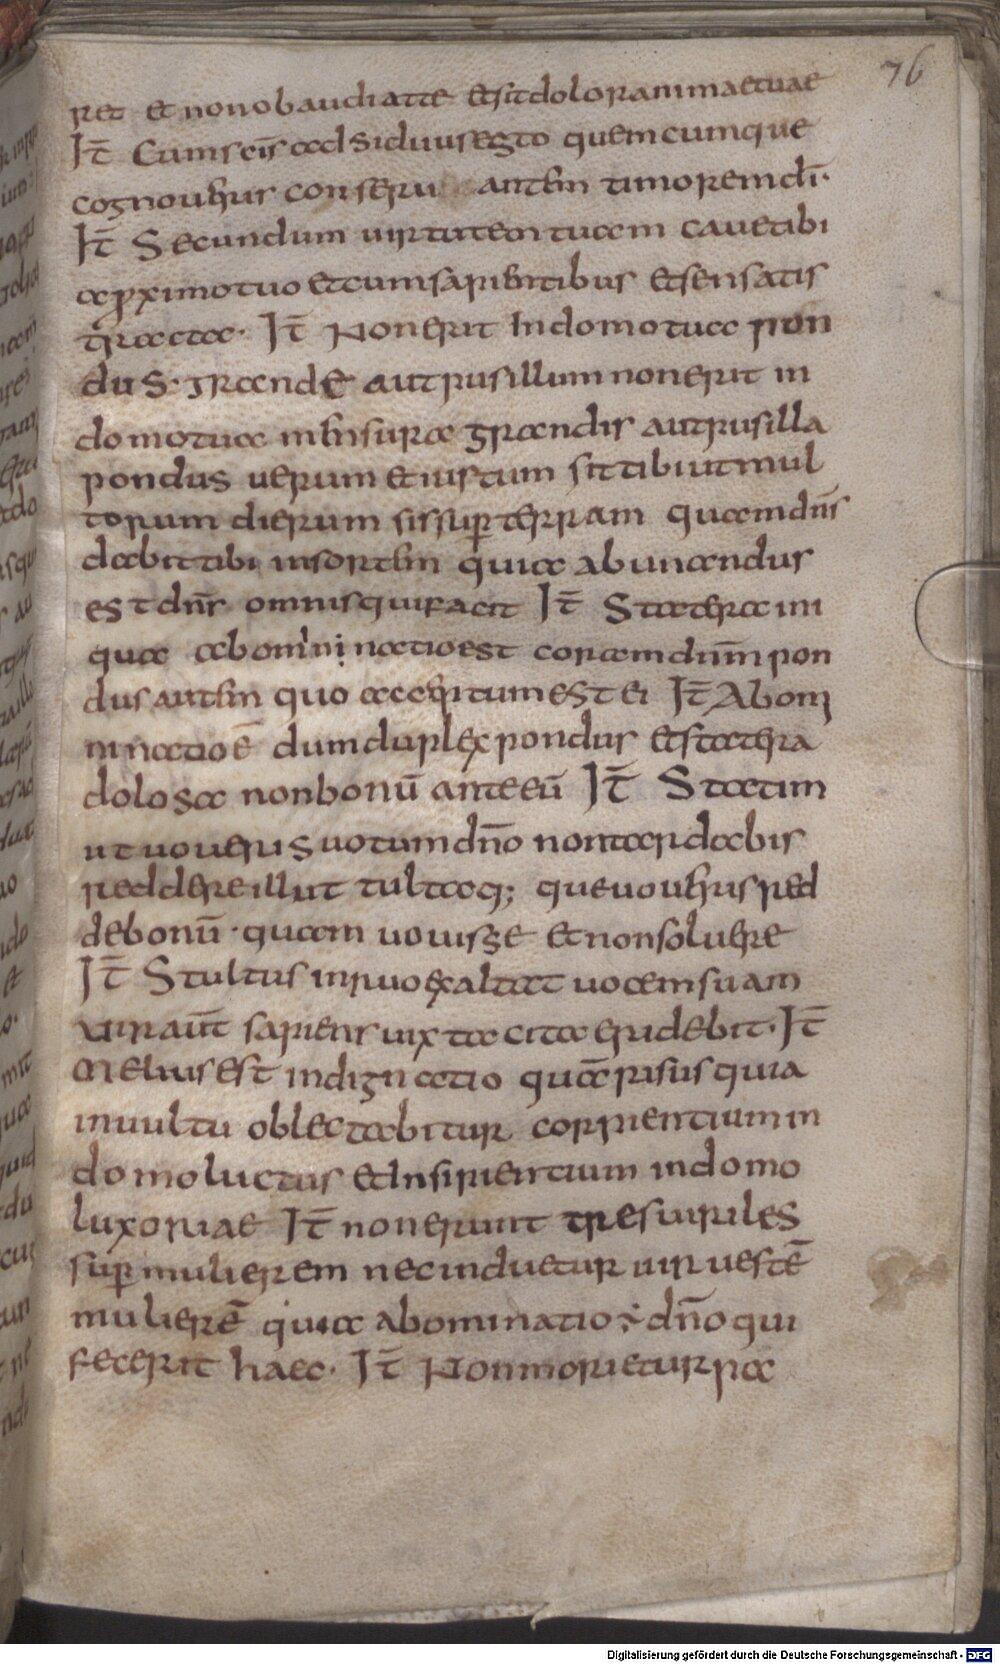 76
ret et non obaudiat te et sit dolor animae tuae
It̄ Cum scīs adsiduus esto quemcumque
cognoveris conseru autem timorem dī·
It̄ Secundum uirtutem tuam cauetibi
a ꝓximo tuo et cum sapientibus et sensatis
tracta· It̄ Non erit In domo tua pon
dus· grande aut pusillum non erit in
domo tua mensura grandis aut pusilla
pondus uerum et iustum sit tibi ut mul
torum dierum sis suꝑ terram quam dn̄s
dabit tibi in sortem quia abunandus
est dn̄s omnis qui facit It̄ Statera ini
qua abominatio est coram dn̄m pon
dus autem quo acceptum est ei It̄ Abomi
natio ē dum duplex pondus et statera
dolosa non bonū ante eū It̄ Statim
ut uoueris uotum dn̄o non tardabis
reddere illut tu itaq; que uoueris red
de bonū· quam uouisse et non soluere
It̄ Stultus in risu exaltat uocem suam
uir aut̄ sapiens uix tacita eridebit· It̄
Melius est indignatio quā risus quia
in uultu oblectabitur cor pientium in
domo luctus et Insipientium in domo
luxoriae It̄ non erunt tres uiriles
suꝑ mulierem nec induetur uir uestē
mulierē quia abominatio ÷ dn̄o qui
fecerit haec· It̄ Non morietur pa
Digitalisierung gefördert durch die Deutsche Forschungsgemeinschaft - DFG